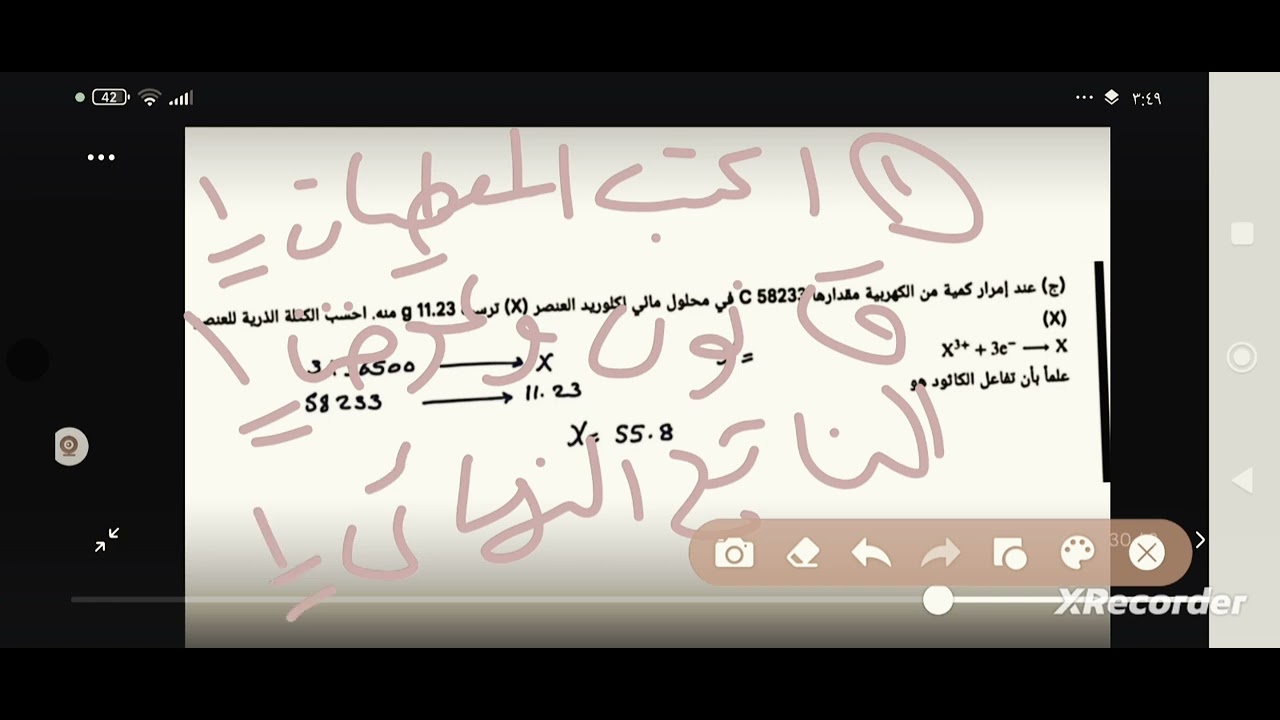 42
٣:٤٩
١ اكتب المعطيات ١
(ج) عند إمرار كمية من الكهربية مقدارها 58233 C في محلول مائي لكلوريد العنصر (X) ترسب 11.23 g منه. احسب الكتلة الذرية للعنصر
(X)
قانون وعوضنا ١
X³⁺ + 3e⁻ ⟶ X
علماً بأن تفاعل الكاثود هو
6500 ⟶ X
58233 ⟶ 11.23
X = 55.8
الناتج النهائي ١
30
XRecorder